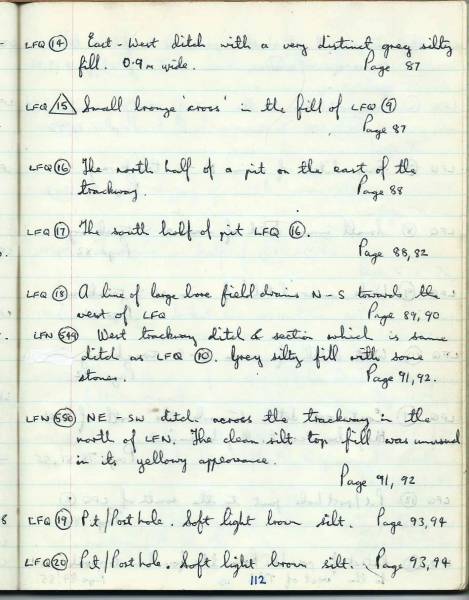 LFQ 14 East-West ditch with a very distinct grey silty
fill. 0.9m wide. Page 87
LFQ 15 Small bronze 'cross' in the fill of LFQ 9
Page 87
LFQ 16 The north half of a pit on the east of the
trackway. Page 88
LFQ 17 The south half of pit LFQ 16.
Page 88, 82
LFQ 18 A line of large bore field drains N-S towards the
west of LFQ Page 89, 90
LFN 549 West trackway ditch & section which is same
ditch as LFQ 10. Grey silty fill with some
stones. Page 91, 92.
LFN 550 NE-SW ditch across the trackway in the
north of LFN. The clean silt top fill was unusual
in its yellowy appearance.
Page 91, 92
8 LFQ 19 Pit/Post hole. Soft light brown silt. Page 93, 94
LFQ 20 Pit/Post hole. Soft light brown silt. Page 93, 94
112